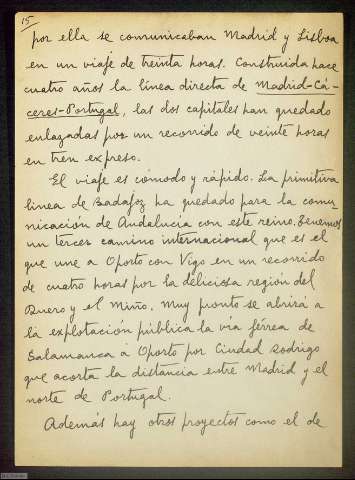 15
por ella se comunicaban Madrid y Lisboa
en un viaje de treinta horas. Construida hace
cuatro años la línea directa de Madrid-Cá-
ceres-Portugal, las dos capitales han quedado
enlazadas por un recorrido de veinte horas
en tren expreso.
El viaje es cómodo y rápido. La primitiva
línea de Badajoz ha quedado para la comu-
nicación de Andalucía con este reino. Tenemos
un tercer camino internacional que es el
que une a Oporto con Vigo en un recorrido
de cuatro horas por la deliciosa región del
Duero y el Miño. Muy pronto se abrirá a
la explotación pública la vía férrea de
Salamanca a Oporto por Ciudad Rodrigo
que acorta la distancia entre Madrid y el
norte de Portugal.
Además hay otros proyectos como el de